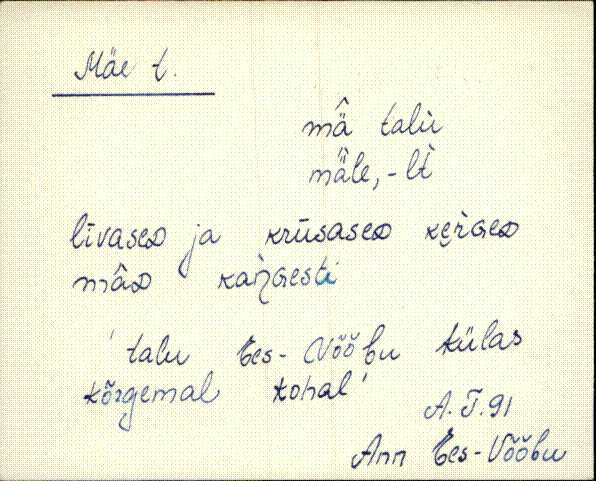 Mäe t.
mä̂ talù
mäle, -lt̀
līvaseD ja krūsaseD kerGeD
mâD kaŋGesti
'talu Ees-Võõbu külas
kõrgemal kohal'
A. T. 91
Ann Ees-Võõbu